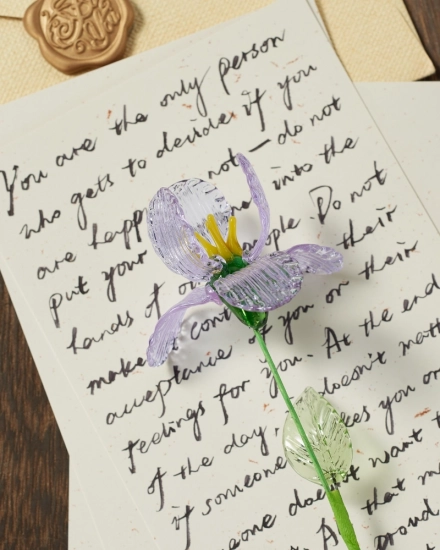 You are the only person
who gets to decide if you
are happ not – do not
put your into the
hands of ople. Do not
make cont their
acceptance of you or their
feelings for you. At the end
of the day, doesn't matt
if someone kes you or
eone doesn't want t
A that m